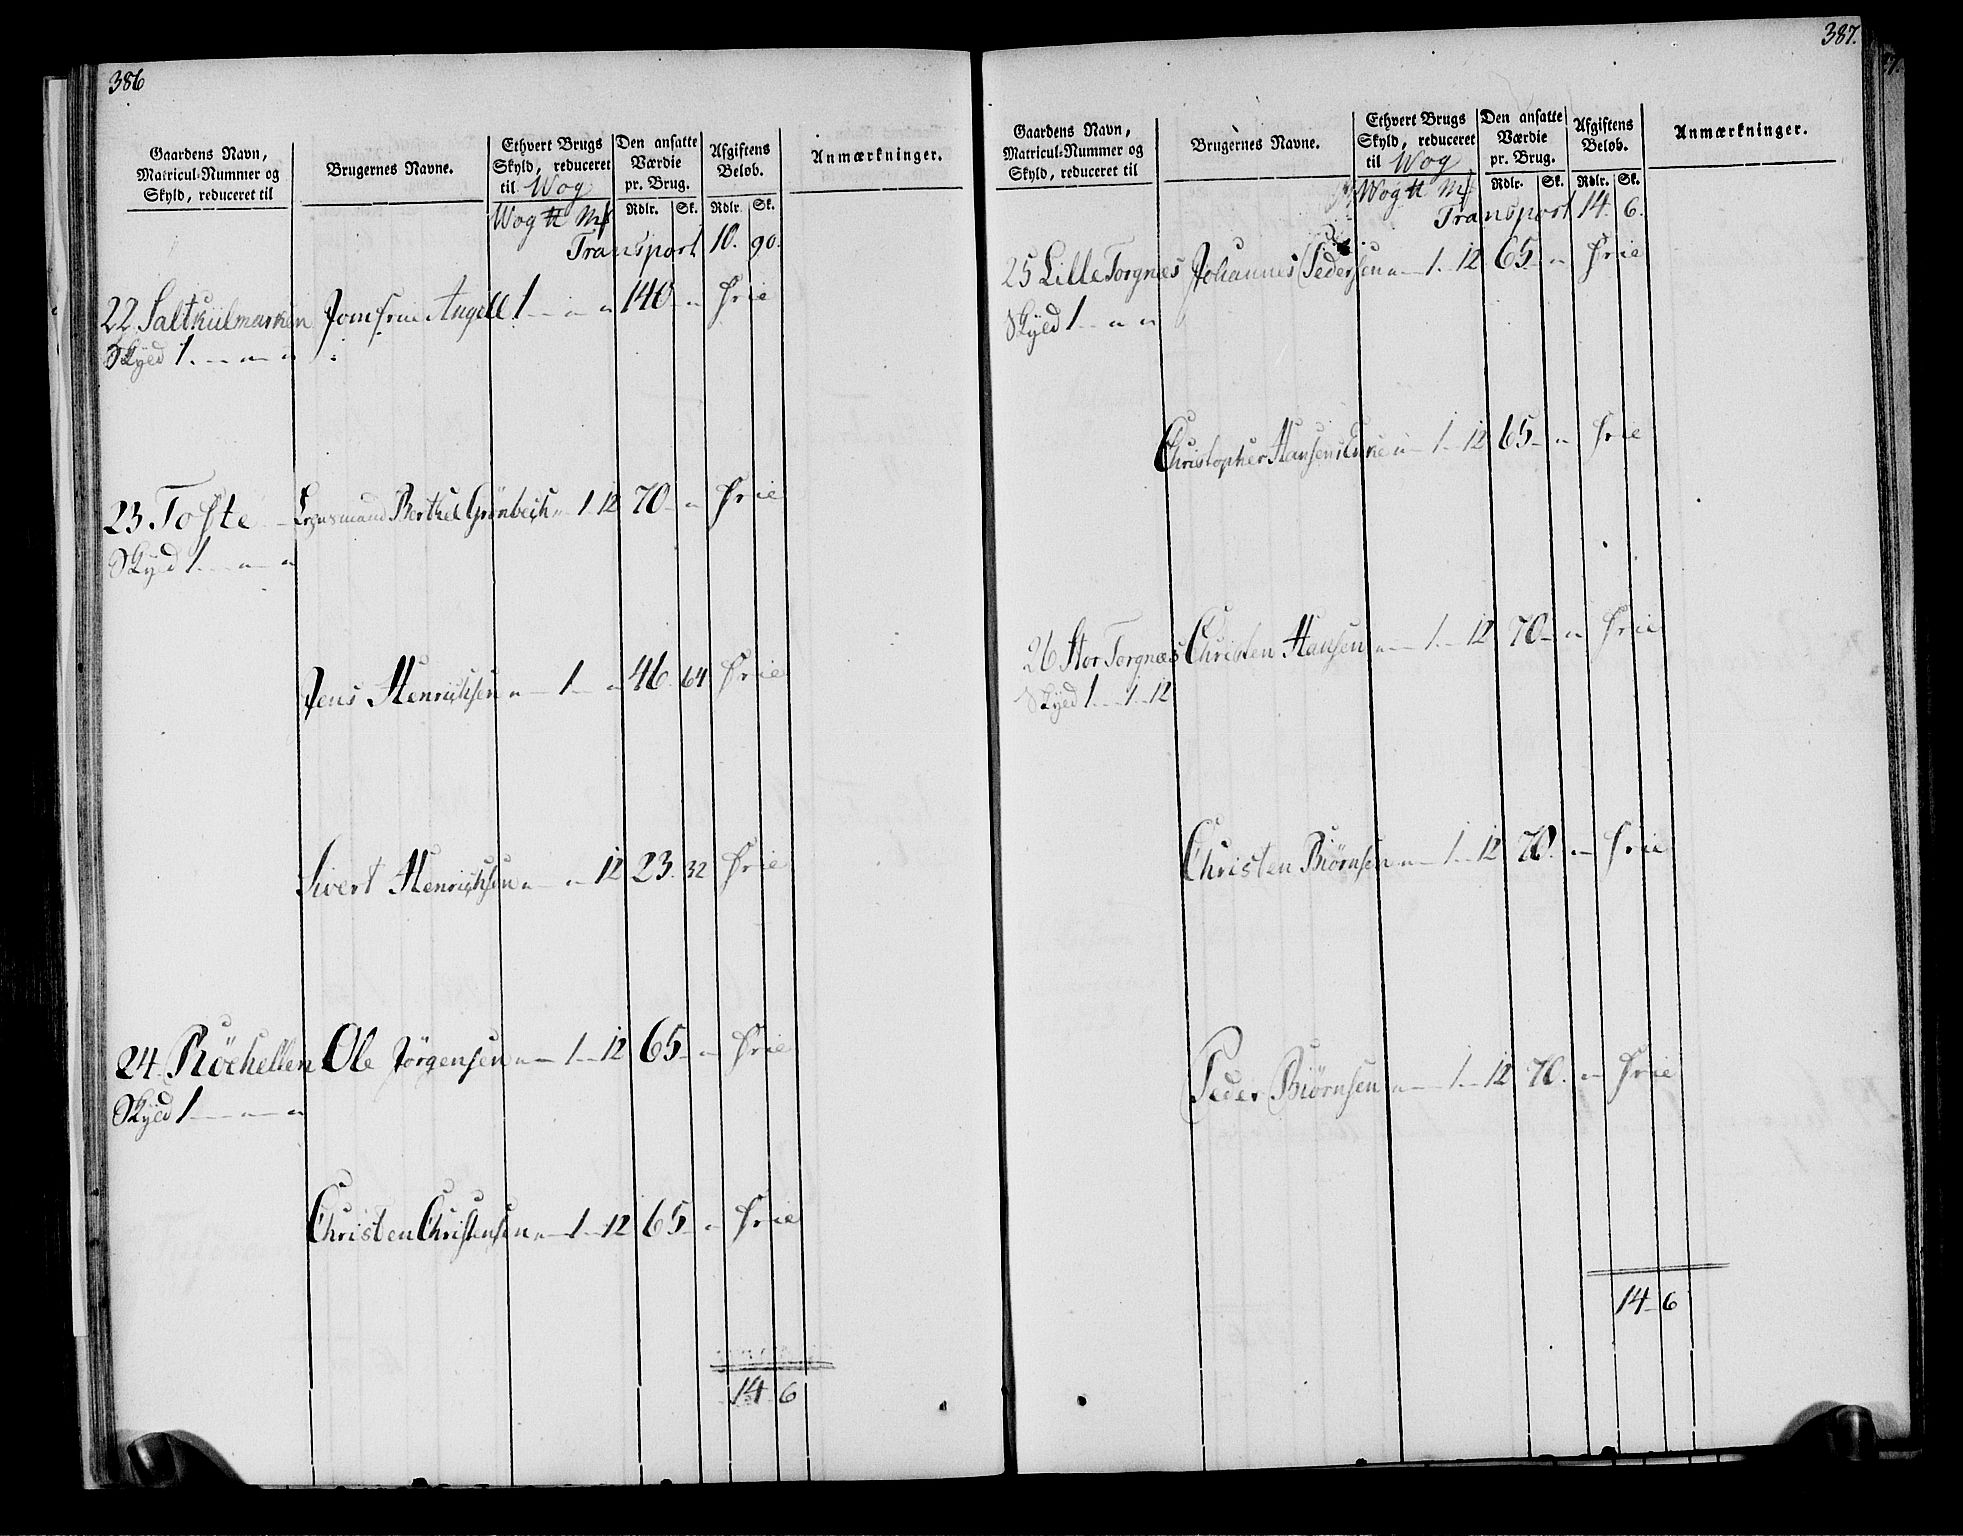 386
Gaardens Navn, Matricul-Nummer og Skyld, reduceret til
Brugernes Navne.
Ethvert Brugs Skyld, reduceret til Wog
Den ansatte Værdie pr. Brug.
Afgiftens Beløb.
Anmærkninger.
Wog ℔ Mk Rdlr. Sk. Rdlr. Sk.
Transport 10. 90.
22 Saltkulmarken Jomfrue Angell 1 - " " 140 " Frie
Skyld 1. - " - "
23 Tofte Berthel Grönbech " 1 12 70 - " Frie
Skyld 1. - " - "
Jens Henrichsen " - 1 - " 46. 64 Frie
Sivert Henrichsen " - " 12 23. 32 Frie
24 Röehelten Ole Jörgensen " - 1 - 12 65 - " Frie
Skyld 1 - " - "
Christen Christensen " - 1 - 12 65 - " Frie
14 6
387.
Gaardens Navn, Matricul-Nummer og Skyld, reduceret til
Brugernes Navne.
Ethvert Brugs Skyld, reduceret til Wog
Den ansatte Værdie pr. Brug.
Afgiftens Beløb.
Anmærkninger.
Wog ℔ Mk Rdlr. Sk. Rdlr. Sk.
Transport 14. 6.
25 Lille Torgnæs Johannes Pedersen " - 1. 12 65 - " Frie
Skyld 1 - " "
Christopher Hansens Enke " - 1 - 12 65 - " Frie
26 Stor Torgnæs Christen Hansen " - 1. - 12 70 - " Frie
Skyld 1 - 1. 12
Christen Biörnsen " - 1 - 12 70. " Frie
Peder Biörnsen " - 1 - 12 70. " Frie
14 - 6